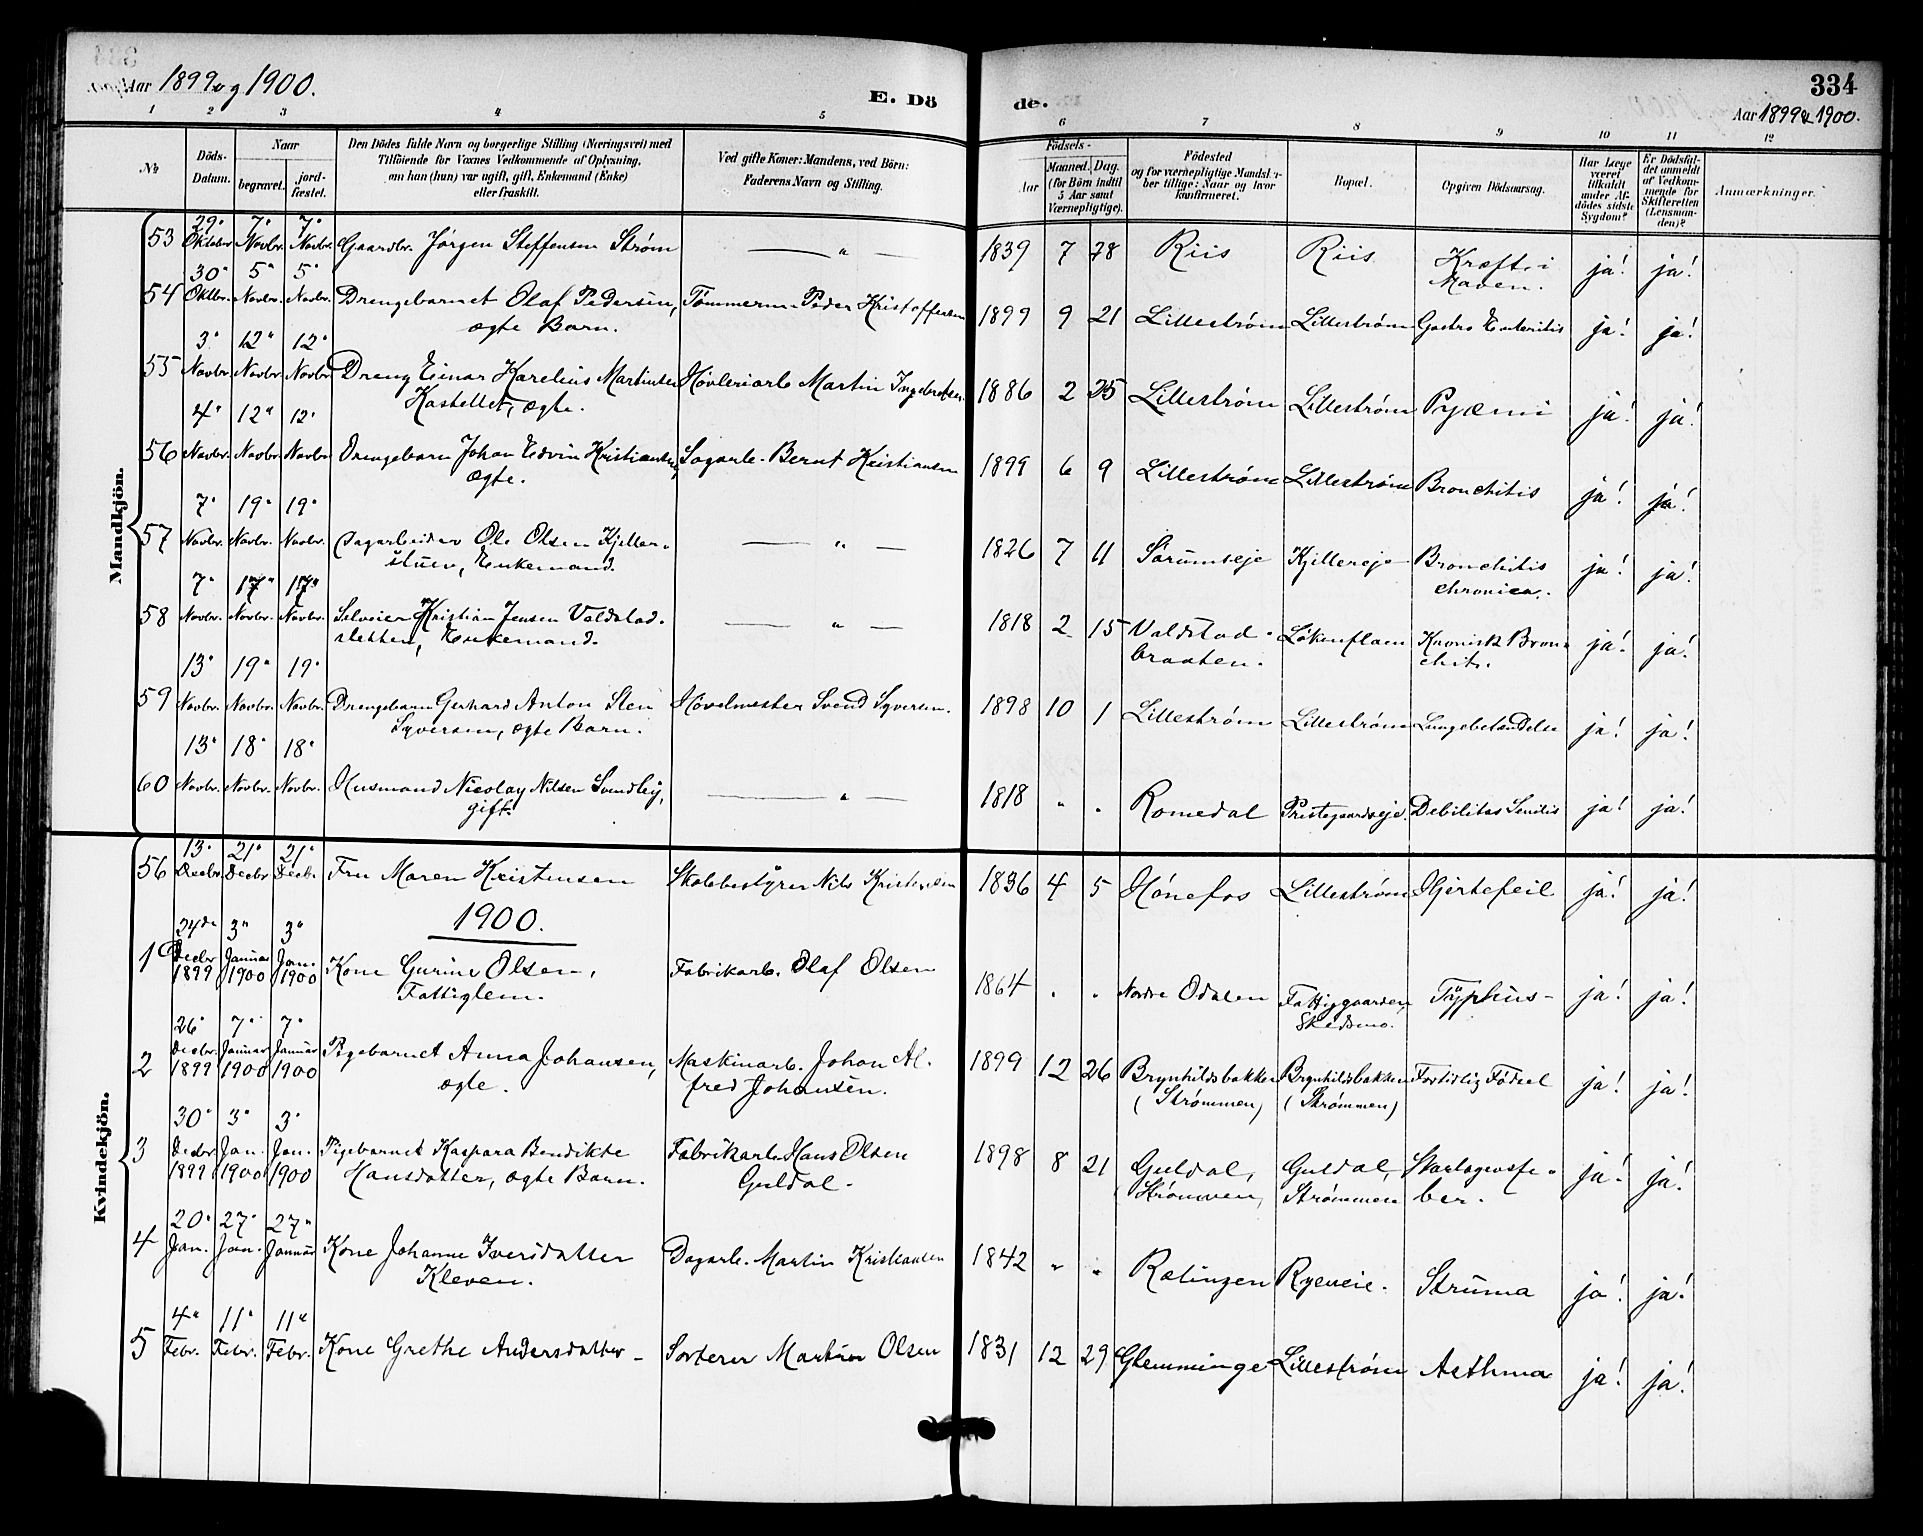 Aar 1899 og 1900.
E. Dö
de.
334
Aar 1899 & 1900.
1 2 3 4 5 6 7 8 9 10 11 12
No
Döds-
Datum.
Naar
begravet.
jord-
fæstet.
Den Dödes fulde Navn og borgerlige Stilling (Næringsvei) med
Tilföiende for Voxnes Vedkommende af Oplysning,
om han (hun) var ugift, gift, Enkemand (Enke)
eller fraskilt.
Ved gifte Koner: Mandens, ved Börn:
Faderens Navn og Stilling.
Födsels-
Aar
Maaned. Dag.
(for Börn indtil
5 Aar samt
Værnepligtige).
Födested
og for værnepligtige Mandskaber tillige: Naar og hvor
konfirmeret.
Bopæl.
Opgiven Dödsaarsag.
Har Læge
været
tilkaldt
under Afdödes sidste
Sygdom?
Er Dödsfaldet anmeldt
af Vedkommende for
Skifteretten
(Lensmanden)?
Anmærkninger.
Mandkjön.
53 29. Oktober 7. Novbr. 7. Novbr. Gaardbr. Jørgen Steffensen Strøm — " — 1839 7 28 Riis Riis Kræft i Maven. ja! ja!
54 30. Oktbr. 5. Novbr. 5. Novbr. Drengebarnet Olaf Pedersen, Tømmerm. Peder Kristoffersen 1899 9 21 Lillestrøm Lillestrøm Gastro Enteritis ja! ja!
ægte Barn.
55 3. Novbr. 12. Novbr. 12. Novbr. Dreng Einar Karelius Martinsen Høvleriarb. Martin Ingebretsen 1886 2 25 Lillestrøm Lillestrøm Pyæmi ja! ja!
Kastellet, ægte.
56 4. Novbr. 12. Novbr. 12. Novbr. Drengebarn Johan Edvin Kristiansen, Sagarb. Bernt Kristiansen 1899 6 9 Lillestrøm Lillestrøm Bronchitis ja! ja!
ægte.
57 7. Novbr. 19. Novbr. 19. Novbr. Sagarbeider Ole Olsen Kjeller- — " — 1826 7 11 Sørumseje Kjellereje Bronchitis chronica. ja! ja!
stuen, Enkemand.
58 7. Novbr. 17. Novbr. 17. Novbr. Selveier Kristian Jensen Valdstad- — " — 1818 2 15 Valdstad-braaten. Kronisk Bronchit. ja! ja!
sletten, Enkemand.
59 13. Novbr. 19. Novbr. 19. Novbr. Drengebarn Gerhard Anton Sten Høvelmester Svend Syversen. 1898 10 1 Lillestrøm Lillestrøm Lungebetændelse ja! ja!
Syversen, ægte Barn.
60 13. Novbr. 18. Novbr. 18. Novbr. Husmand Nicolay Nilsen — " — 1818 " " Romedal Prestegaardseje. Debilitas Senilis ja! ja!
gift.
Kvindekjön.
56 13. Decbr. 21. Decbr. 21. Decbr. Fru Maren Kristensen Skolebestyrer Nils Kristensen 1836 4 5 Hönefos Lillestrøm Hjertefeil ja! ja!
1900.
1 24de Decbr 1899 3" Januar 1900 3" Jan. 1900 Kone Gurine Olsen, Fabrikarb. Olaf Olsen 1864 " " Nordre Odalen Fattiggaarden, Skedsmo. Typhus- ja! ja!
Fattiglem.
2 26. Decbr 1899 7. Januar 1900 7. Januar 1900 Pigebarnet Anna Johansen, Maskinarb. Johan Alfred Johansen. 1899 12 26 Brynhildsbakken (Strømmen) Brynhildsbakken (Strømmen) Fortidlig Fødsel ja! ja!
ægte.
3 30. Decbr 1899 3. Jan. 1900 3. Jan. 1900 Pigebarnet Kaspara Bendikte Fabrikarb. Hans Olsen Guldal. 1898 8 21 Guldal, Strømmen, Guldal, Strømmen Skarlagensfeber. ja! ja!
Hansdatter, ægte Barn.
4 20. Jan. 27. Jan. 27. Januar Kone Johanne Iversdatter Dagarb. Martin Kristiansen 1842 " " Rælingen Ryeneie. Struma ja! ja!
Kleven.
5 4. Febr. 11. Febr. 11. Febr. Kone Grethe Andersdatter - Sorterer Martin Olsen 1831 12 29 Glemminge Lillestrøm Asthma ja! ja!